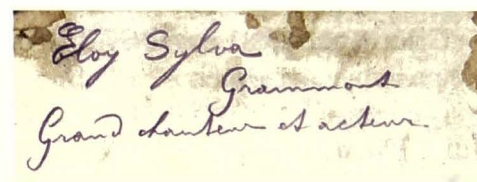 Eloy Sylva
Grammont
Grand chanteur et acteur